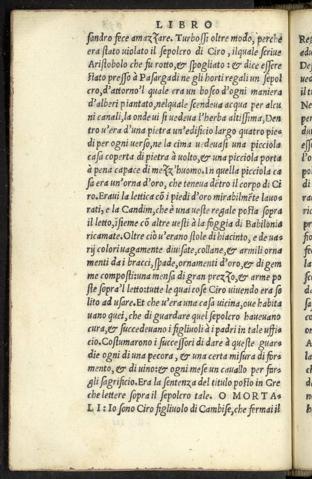 LIBRO
sandro fece amazzare. Turbossi oltre modo, perche
era stato uiolato il sepolcro di Ciro, ilquale scriue
Aristobolo che fu rotto, & spogliato: & dice essere
stato presso à Pasargadi ne gli horti regali un sepol
cro, d'attorno'l quale era un bosco d'ogni maniera
d'alberi piantato, nelquale scendeua acqua per alcu
ni canali, la onde ui si uedeua l'herba altissima, Den
tro u'era d'una pietra un'edificio largo quatro pie-
di per ogni uerso, ne la cima uedeuasi una picciola
casa coperta di pietra à uolto, & una picciola porta
à pena capace di mezz'huomo. In quella picciola ca
sa era un'orna d'oro, che teneua dētro il corpo di Ci
ro. Eraui la lettica cō i piedi d'oro mirabilmēte lauo
rati, e la Candim, che è una ueste regale posta sopra
il letto, īsieme cō altre uesti à la foggia di Babilonia
ricamate. Oltre ciò u'erano stole di hiacinto, e de ua-
rij colori uagamente diuisate, collane, & armili orna
menti da i bracci, spade, ornamenti d'oro, & di gem
me composti: una mensa di gran prezzo, & arme po
ste sopra'l letto: tutte le quai cose Ciro uiuendo era so
lito ad usare. Et che u'era una casa uicina, oue habita
uano quei, che di guardare quel sepolcro haueuano
cura, & succedeuano i figliuoli à i padri in tale uffi-
cio. Costumarono i successori di dare à queste guar-
die ogni dì una pecora, & una certa misura di for-
mento, & di uino: & ogni mese un cauallo per far-
gli sagrificio. Era la sentenza del titulo posto in Gre
che lettere sopra il sepolcro tale. O MORTA-
LI: Io sono Ciro figliuolo di Cambise, che fermai il